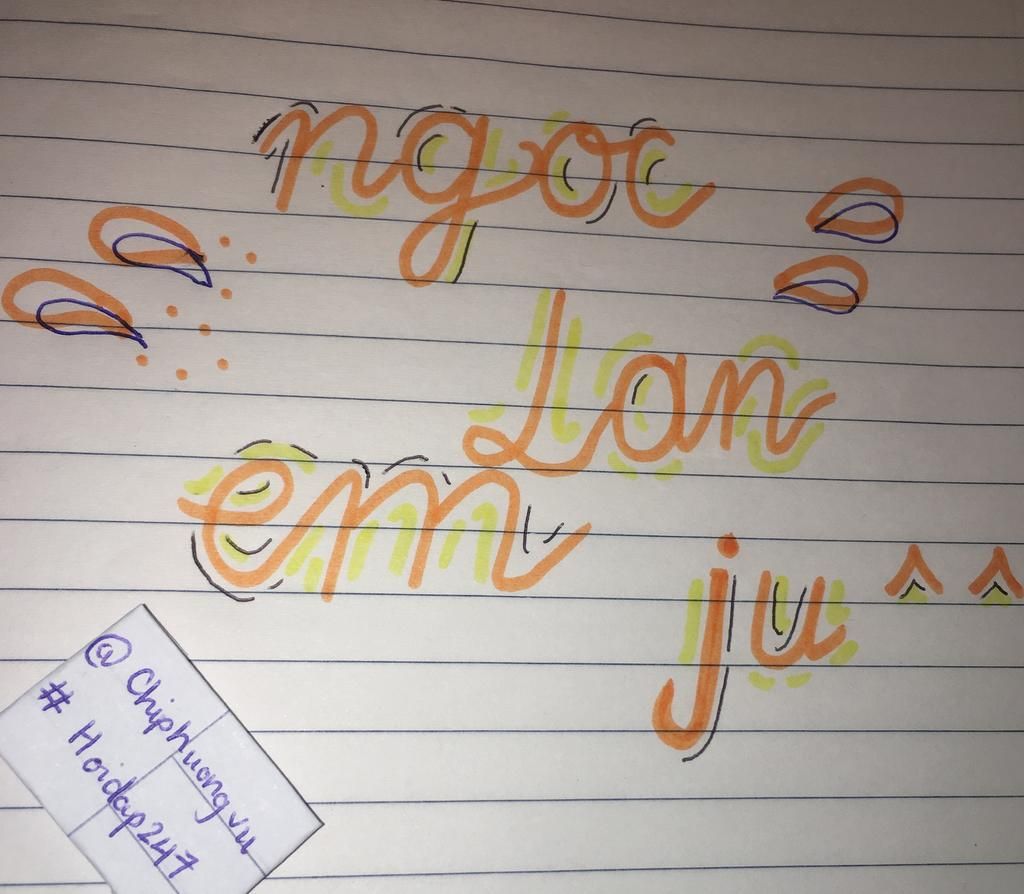 ngoc
Lan
em
ju ^ ^
@ Chiphuongvu
# Hoidap247